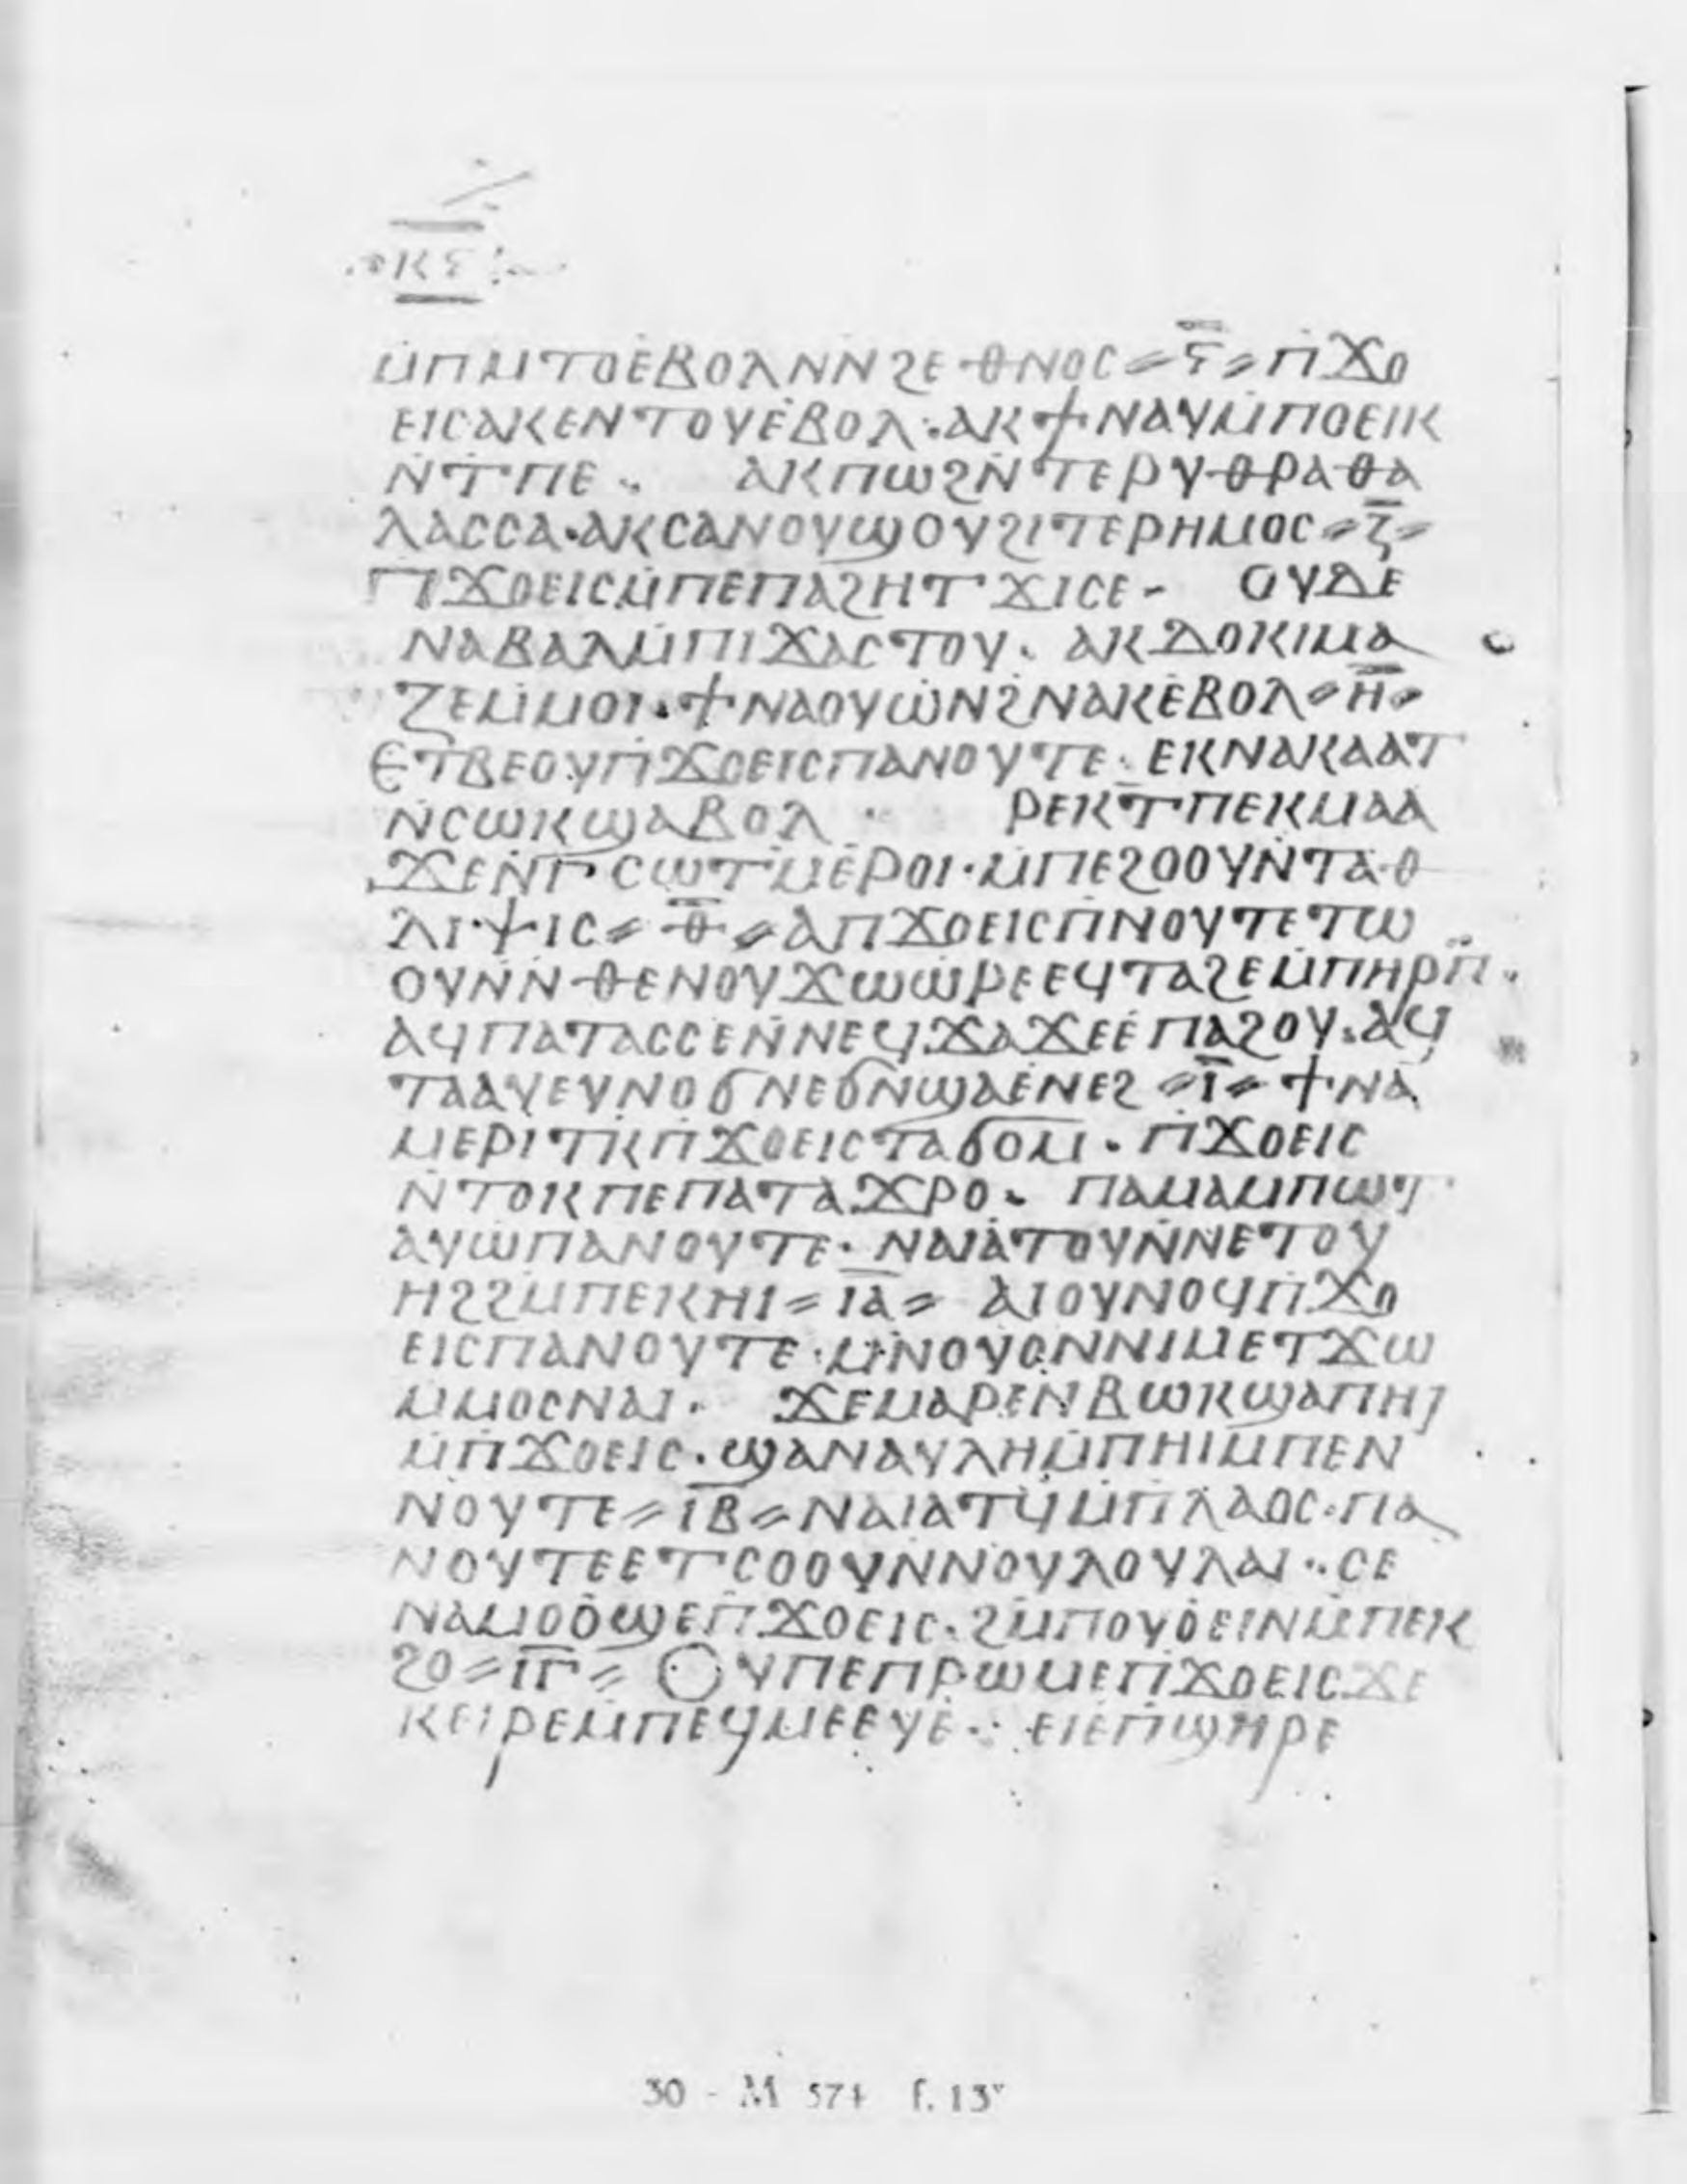 ⲕⲋ
ⲙ̇ⲡⲙ̇ⲧⲟⲉ̇ⲃⲟⲗⲛ̇ⲛ̇ϩⲉⲑⲛⲟⲥ⸗ⲋ̅⸗ⲡ̇ϫⲟ
ⲉⲓⲥⲁⲕⲉⲛⲧⲟⲩⲉ̇ⲃⲟⲗ·ⲁⲕϯⲛⲁⲩⲙ̇ⲡⲟⲉⲓⲕ
ⲛ̇ⲧ̇ⲡⲉ· ⲁⲕⲡⲱϩⲛ̇ⲧⲉⲣⲩⲑⲣⲁⲑⲁ
ⲗⲁⲥⲥⲁ·ⲁⲕⲥⲁⲛⲟⲩϣⲟⲩϩⲓⲧⲉⲣⲏⲙⲟⲥ⸗ⲍ̅⸗
ⲡ̇ϫⲟⲉⲓⲥⲙ̇ⲡⲉⲡⲁϩⲏⲧϫⲓⲥⲉ· ⲟⲩⲇⲉ
ⲛⲁⲃⲁⲗⲙ̇ⲡⲓϫⲁⲥⲧⲟⲩ· ⲁⲕⲇⲟⲕⲓⲙⲁ
ⲍⲉⲙ̇ⲙⲟⲓ·ϯⲛⲁⲟⲩⲱ̇ⲛϩⲛⲁⲕⲉ̇ⲃⲟⲗ⸗ⲏ̅⸗
ⲉⲧⲃⲉⲟⲩⲡ̇ϫⲟⲉⲓⲥⲡⲁⲛⲟⲩⲧⲉ·ⲉⲕⲛⲁⲕⲁⲁⲧ
ⲛ̇ⲥⲱⲕϣⲁⲃⲟⲗ· ⲣⲉⲕⲧ̇ⲡⲉⲕⲙⲁⲁ
ϫⲉⲛ̇ⲅ̇ⲥⲱⲧⲙ̇ⲉ̇ⲣⲟⲓ·ⲙ̇ⲡⲉϩⲟⲟⲩⲛ̇ⲧⲁⲑ
ⲗⲓⲯⲓⲥ⸗ⲑ̅⸗ⲁⲡϫⲟⲉⲓⲥⲡ̇ⲛⲟⲩⲧⲉⲧⲱ
ⲟⲩⲛ̇ⲛ̇ⲑⲉⲛⲟⲩϫⲱⲱ̇ⲣⲉⲉϥⲧⲁϩⲉⲙ̇ⲡⲏⲣⲡ̇·
ⲁϥⲡⲁⲧⲁⲥⲥⲉⲛ̇ⲛⲉϥϫⲁϫⲉⲉ̇ⲡⲁϩⲟⲩ·ⲁϥ
ⲧⲁⲁⲩⲉⲩⲛⲟϭⲛⲉϭⲛ̇ϣⲁⲉ̇ⲛⲉϩ⸗ⲓ̅⸗ϯⲛⲁ
ⲙⲉⲣⲓⲧⲕ̇ⲡ̇ϫⲟⲉⲓⲥⲧⲁϭⲟⲙ·ⲡ̇ϫⲟⲉⲓⲥ
ⲛ̇ⲧⲟⲕⲡⲉⲡⲁⲧⲁϫⲣⲟ· ⲡⲁⲙⲁⲙ̇ⲡⲱⲧ
ⲁⲩⲱ̇ⲡⲁⲛⲟⲩⲧⲉ·ⲛⲁⲓⲁ̇ⲧⲟⲩⲛ̇ⲛⲉⲧⲟⲩ
ⲏϩϩⲙ̇ⲡⲉⲕⲏⲓ⸗ⲓ̅ⲁ̅⸗ ⲁⲓⲟⲩⲛⲟϥⲡ̇ϫⲟ
ⲉⲓⲥⲡⲁⲛⲟⲩⲧⲉ·ⲙ̇ⲛⲟⲩⲟⲛⲛⲓⲙⲉⲧϫⲱ
ⲙ̇ⲙⲟⲥⲛⲁⲓ· ϫⲉⲙⲁⲣⲉⲛⲃⲱⲕϣⲁⲡⲏⲓ
ⲙ̇ⲡ̇ϫⲟⲉⲓⲥ·ϣⲁⲛⲁⲩⲗⲏⲙ̇ⲡⲏⲓⲙ̇ⲡⲉⲛ
ⲛⲟⲩⲧⲉ⸗ⲓ̅ⲃ̅⸗ⲛⲁⲓⲁⲧϥⲙ̇ⲡ̇ⲗⲁⲟⲥ·ⲡⲁ
ⲛⲟⲩⲧⲉⲉⲧⲥⲟⲟⲩⲛⲛ̇ⲟⲩⲗⲟⲩⲗⲁⲓ··ⲥⲉ
ⲛⲁⲙⲟⲟ̇ϣⲉⲡ̇ϫⲟⲉⲓⲥ·ϩⲙ̇ⲡⲟⲩⲟ̇ⲉⲓⲛⲙ̇ⲡⲉⲕ
ϩⲟ⸗ⲓ̅ⲅ̅⸗ ⲟⲩⲡⲉⲡⲣⲱⲙⲉⲡ̇ϫⲟⲉⲓⲥϫⲉ
ⲕⲉⲓⲣⲉⲙ̇ⲡⲉϥⲙⲉⲉⲩⲉ· ⲉⲓⲉ̇ⲡ̇ϣⲏⲣⲉ
30 - M 574 f. 13ᵛ